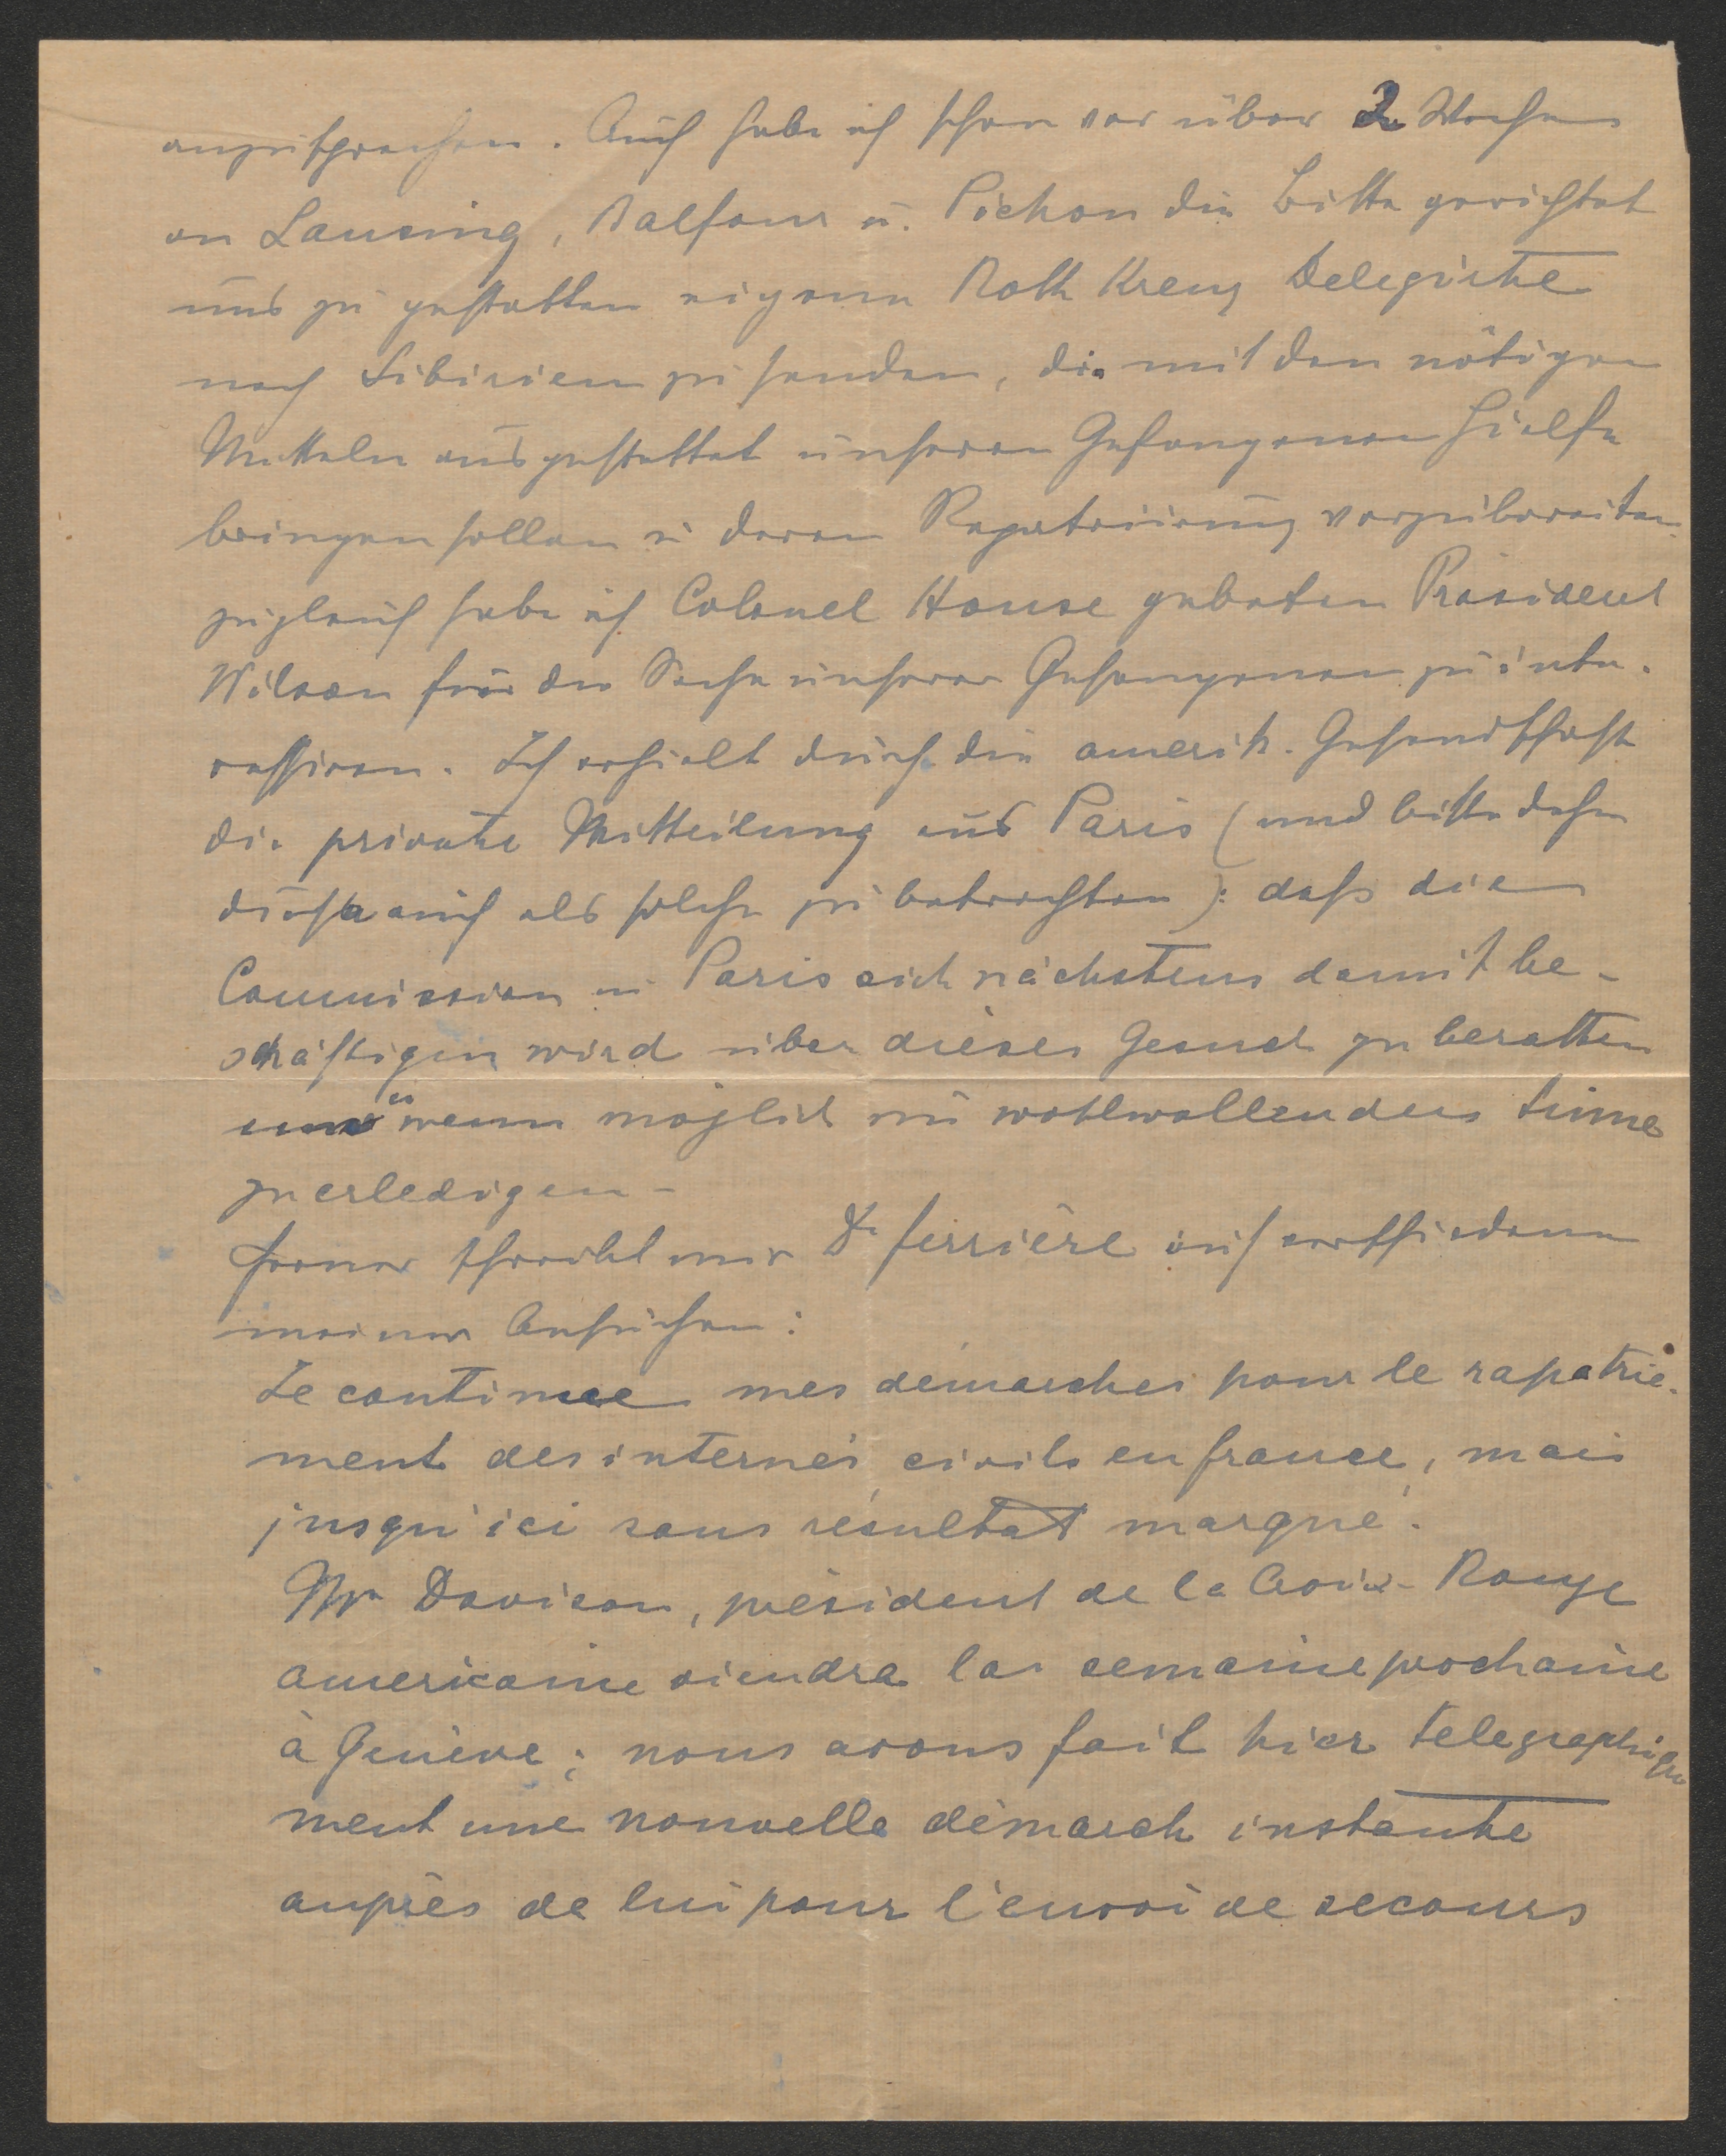 anzusprechen. Auch habe ich schon vor über 2 Wochen
an Lansing, Balfour u. Pichon die Bitte gerichtet
uns zu gestatten eigene Roth Kreuz Delegirte
nach Sibirien zu senden, die mit den nötigen
Mitteln ausgestattet unseren Gefangenen Hielfe
bringen sollen u deren Repatriirung vorzubereiten.
zugleich habe ich Colonel House gebeten Präsident
Wilson für die Sache unserer Gefangenen zu inte-
ressiren. Ich erhielt durch die amerik. Gesandtschaft
die private Mitteilung aus Paris (und bitte
diese auch als solche zu betrachten): daß die
Commission in Paris sich nächstens damit be-
schäftigen wird über dieses Gesuch zu beratten
u wenn möglich im wohlwollenden Sinne
zu erledigen -
ferner schreibt mir Dr ferrière auf verschiedene
meiner Ansuchen:
Je continue mes démarches pour le rapatrie-
ment des internés civils en france, mais
jusqu'ici sans résultat marqué.
Mr Davison, président de la Croix-Rouge
americaine viendra la semaine prochaine
à Genève; nous avons fait hier telegraphique
ment une nouvelle démarch instante
auprès de lui pour l'envoi de secours